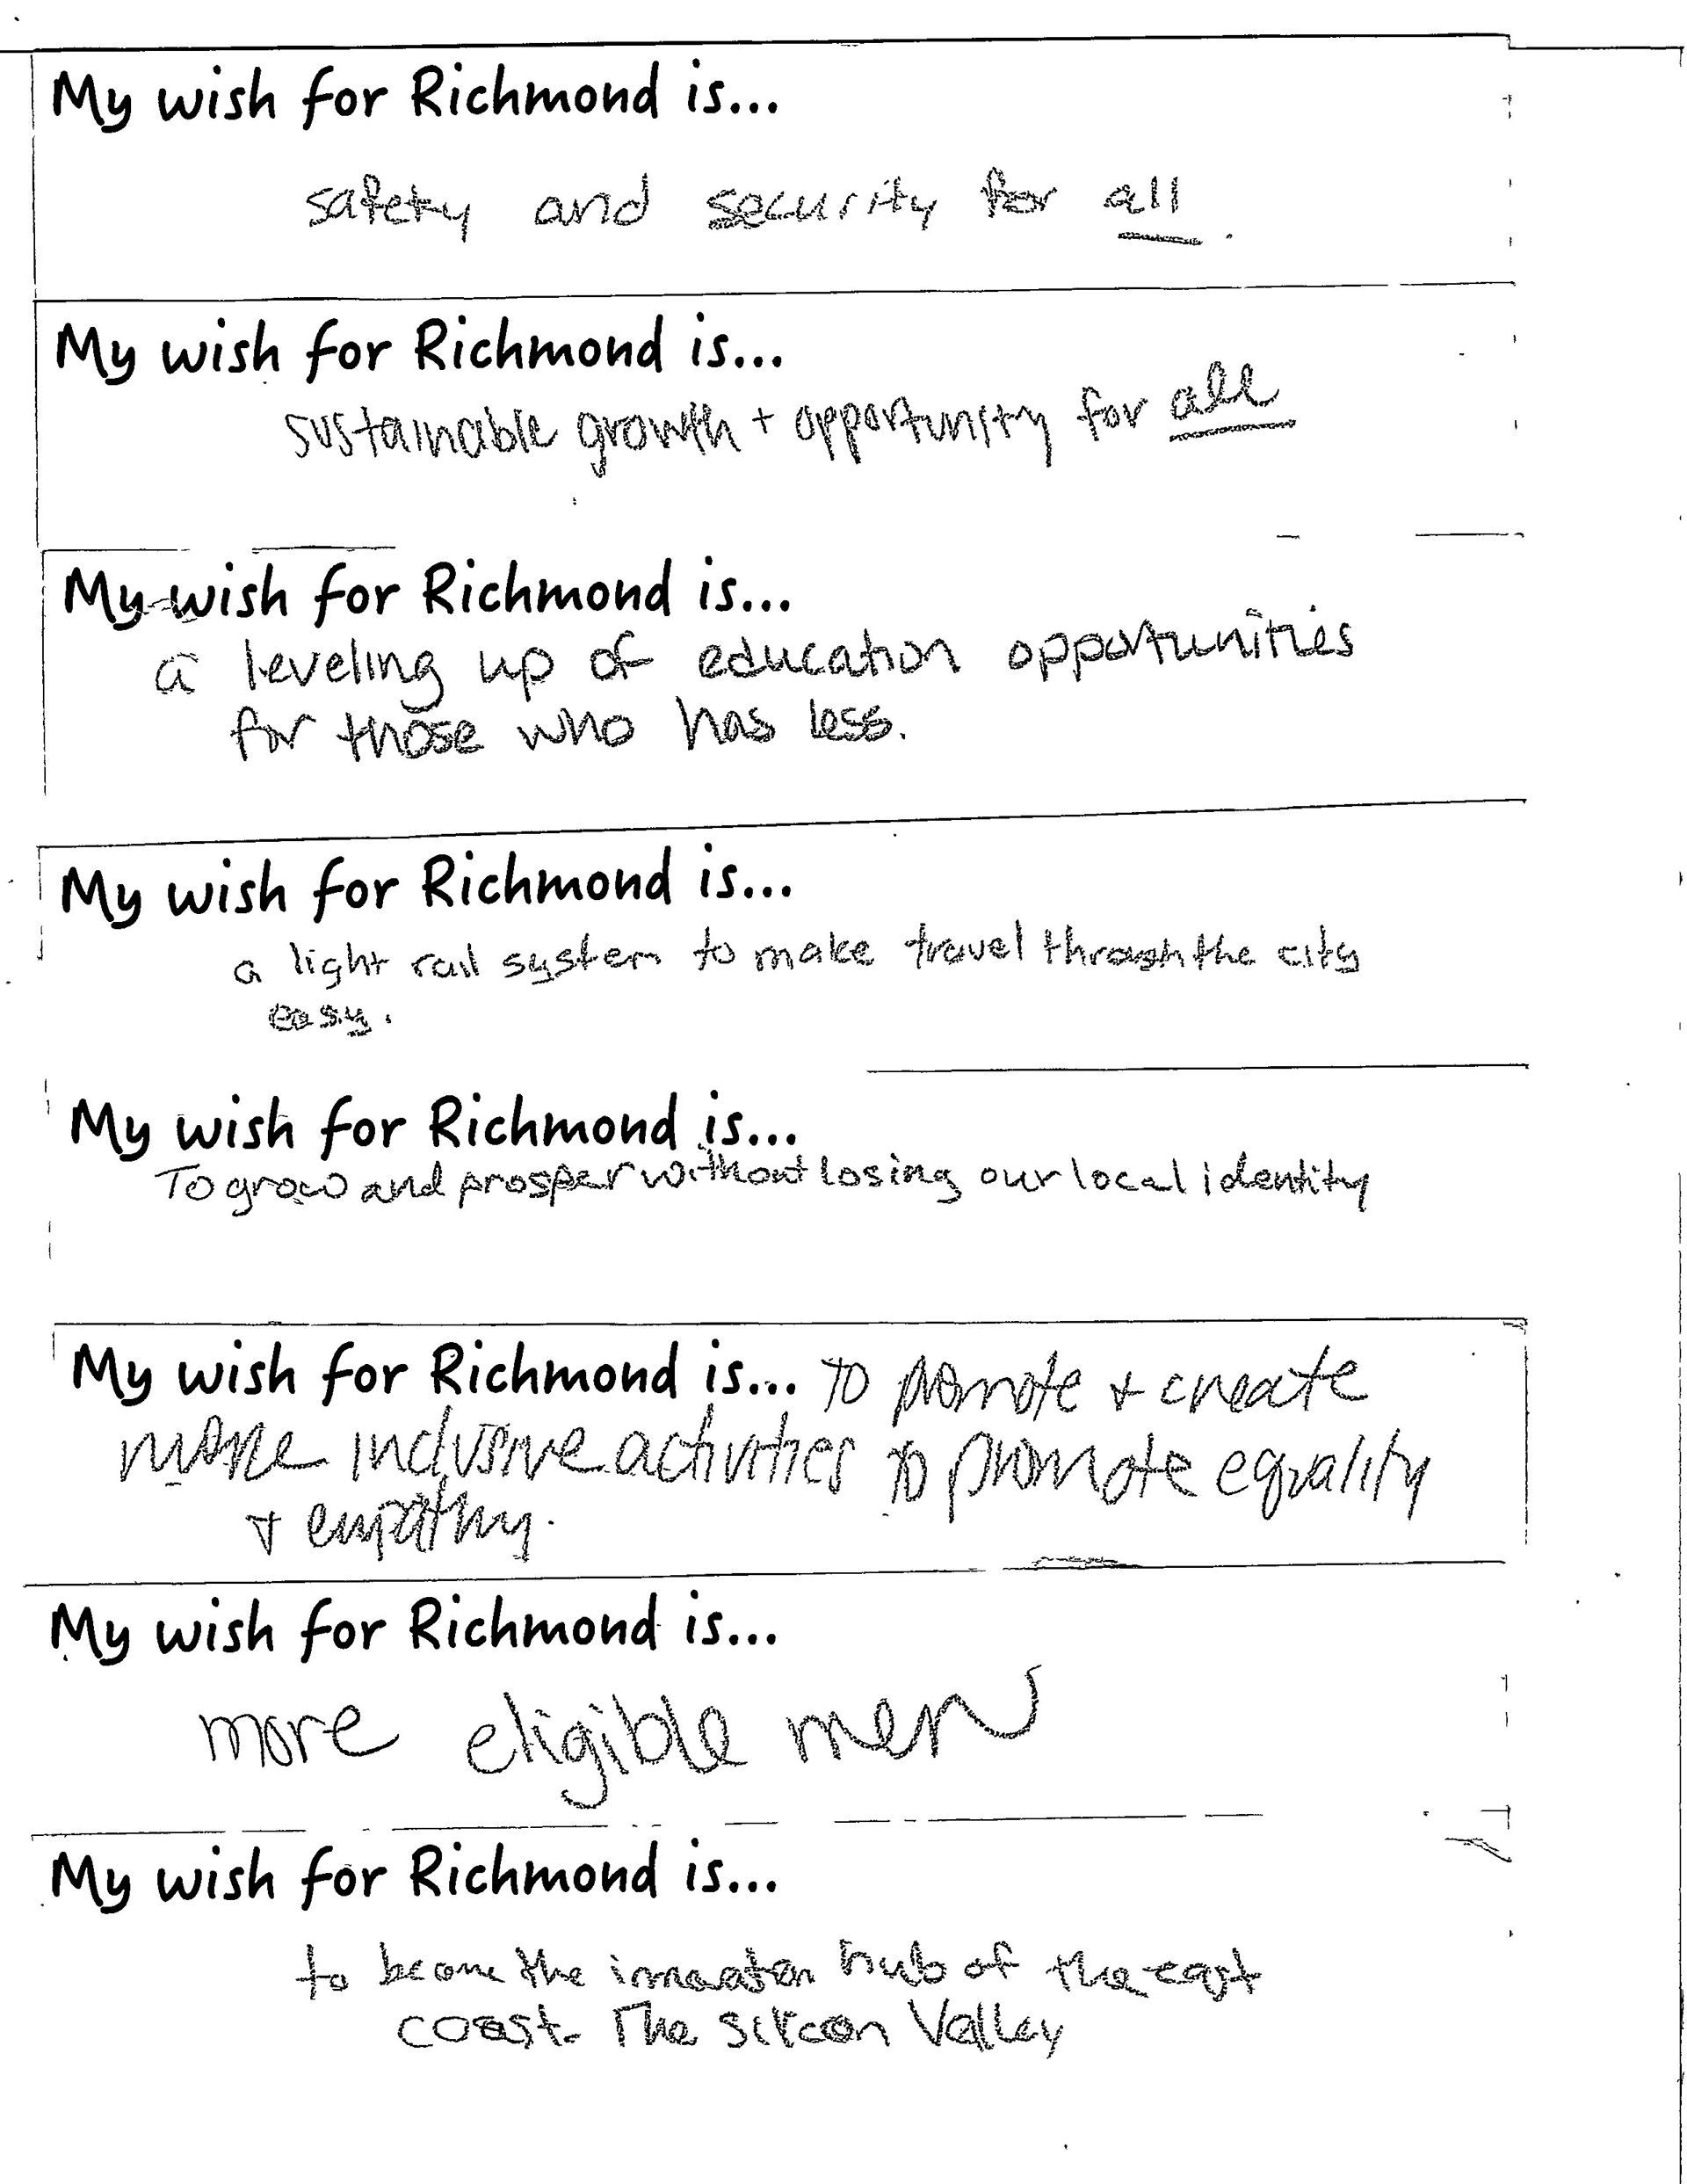 My wish for Richmond is...
safety and security for all.
My wish for Richmond is...
sustainable growth + opportunity for all
My wish for Richmond is...
a leveling up of education opportunities
for those who has less.
My wish for Richmond is...
a light rail system to make travel through the city
easy.
My wish for Richmond is...
To grow and prosper without losing our local identity
My wish for Richmond is... to promote + create
more inclusive activities to promote equality
+ empathy.
My wish for Richmond is...
more eligible men
My wish for Richmond is...
to become the innovation hub of the east
coast. The Silicon Valley